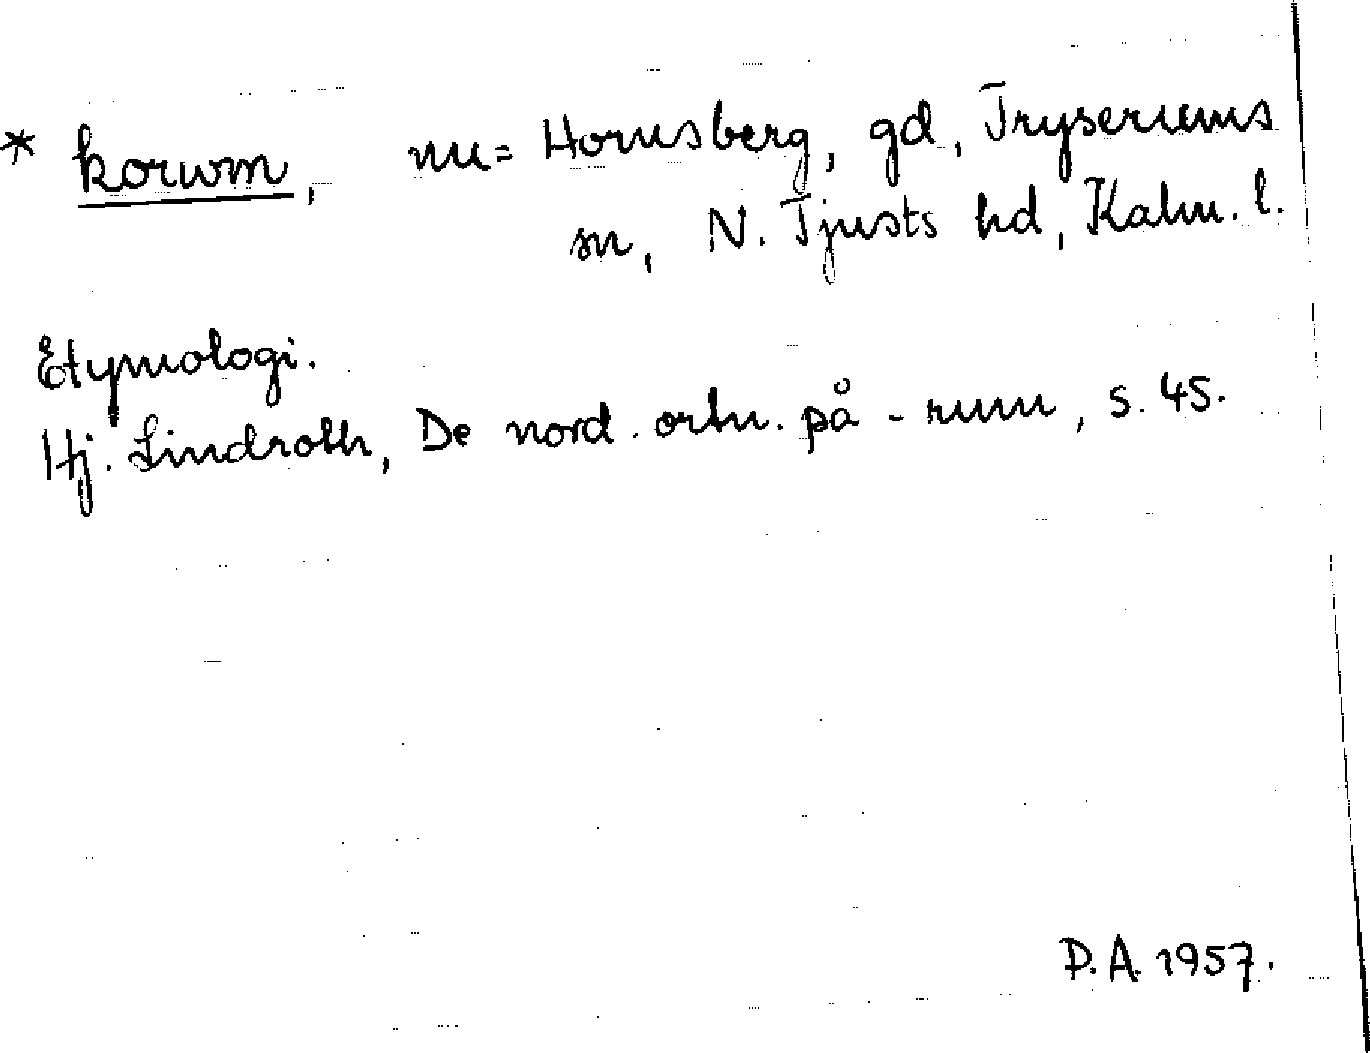 * korwm, nu = Hornsberg, gd, Tryserums
sn, N. Tjusts hd, Kalm. l.
Etymologi.
Hj. Lindroth, De nord. ortn. på -rum, s. 45.
P.A. 1957.